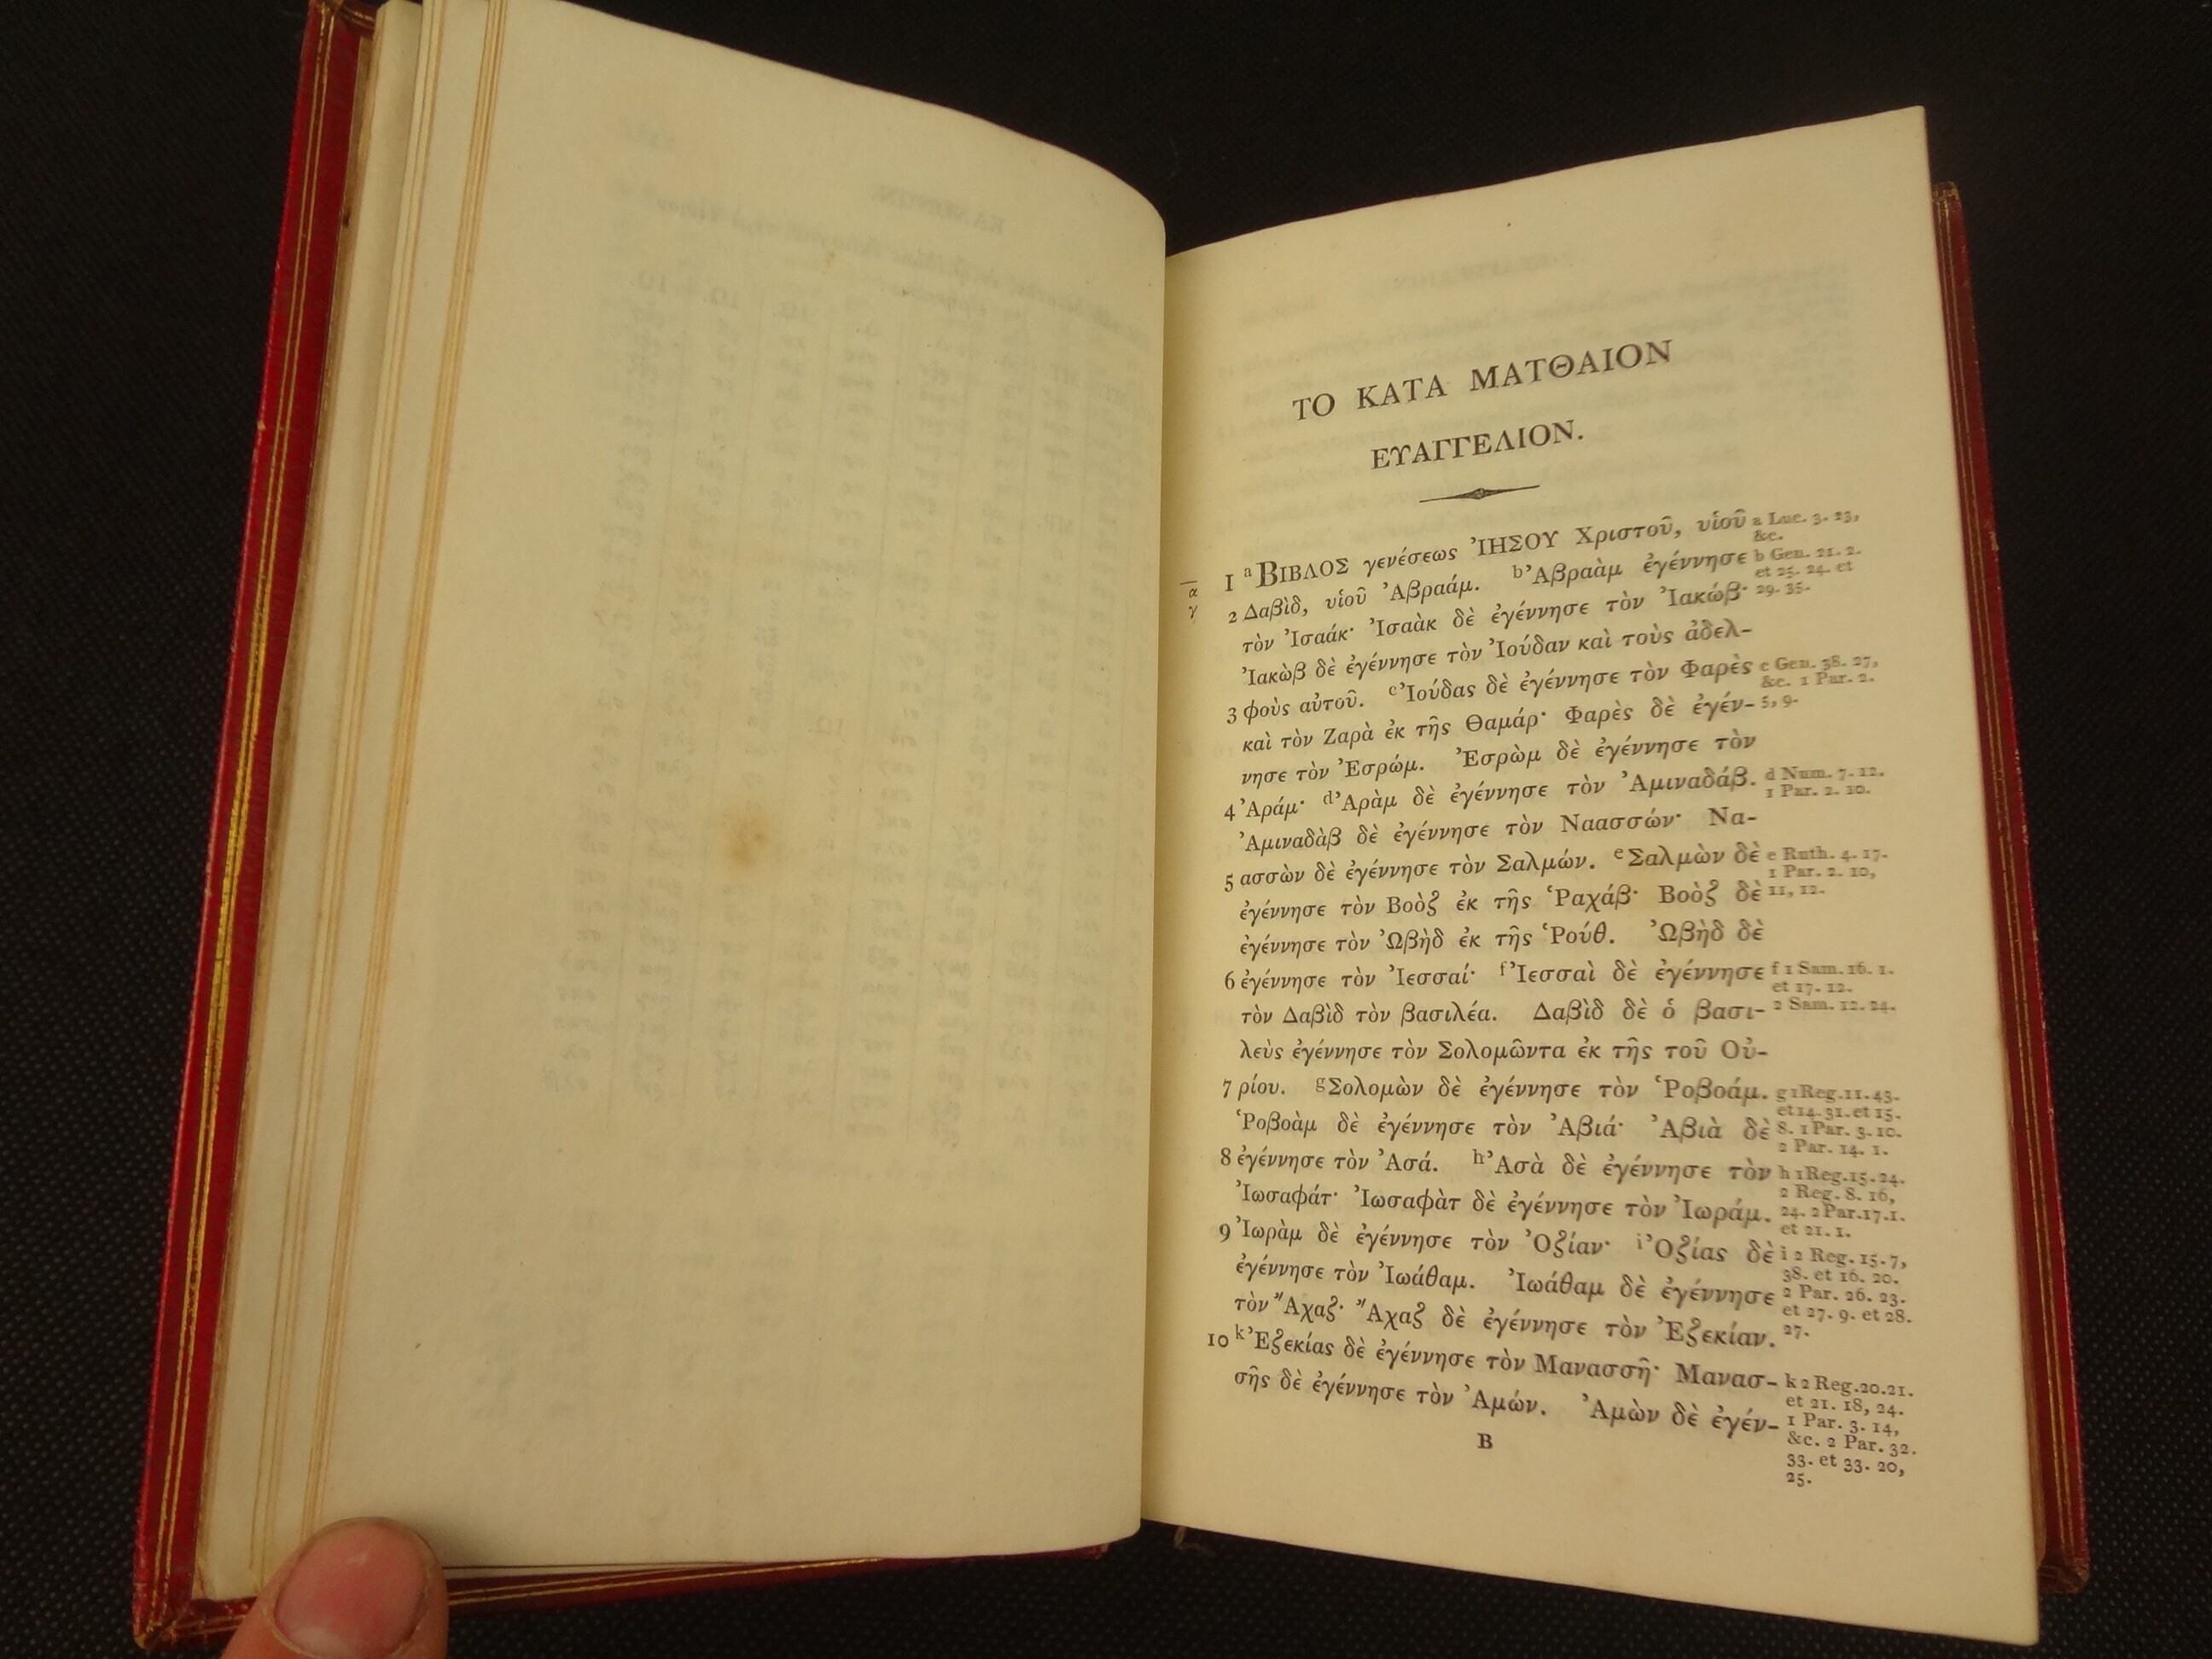 ΤΟ ΚΑΤΑ ΜΑΤΘΑΙΟΝ
ΕΥΑΓΓΕΛΙΟΝ.
α
γ
1 a ΒΙΒΛΟΣ γενέσεως ἸΗΣΟΥ Χριστοῦ, υἱοῦ
2 Δαβὶδ, υἱοῦ Ἀβραάμ. b Ἀβραὰμ ἐγέννησε
τὸν Ἰσαάκ· Ἰσαὰκ δὲ ἐγέννησε τὸν Ἰακώβ·
Ἰακὼβ δὲ ἐγέννησε τὸν Ἰούδαν καὶ τοὺς ἀδελ-
3 φοὺς αὐτοῦ. c Ἰούδας δὲ ἐγέννησε τὸν Φαρὲς
καὶ τὸν Ζαρὰ ἐκ τῆς Θαμάρ· Φαρὲς δὲ ἐγέν-
νησε τὸν Ἐσρώμ. Ἐσρὼμ δὲ ἐγέννησε τὸν
4 Ἀράμ· d Ἀρὰμ δὲ ἐγέννησε τὸν Ἀμιναδάβ.
Ἀμιναδὰβ δὲ ἐγέννησε τὸν Ναασσών· Να-
5 ασσὼν δὲ ἐγέννησε τὸν Σαλμών. e Σαλμὼν δὲ
ἐγέννησε τὸν Βοὸζ ἐκ τῆς Ῥαχάβ· Βοὸζ δὲ
ἐγέννησε τὸν Ὠβὴδ ἐκ τῆς Ῥούθ. Ὠβὴδ δὲ
6 ἐγέννησε τὸν Ἰεσσαί· f Ἰεσσαὶ δὲ ἐγέννησε
τὸν Δαβὶδ τὸν βασιλέα. Δαβὶδ δὲ ὁ βασι-
λεὺς ἐγέννησε τὸν Σολομῶντα ἐκ τῆς τοῦ Οὐ-
7 ρίου. g Σολομὼν δὲ ἐγέννησε τὸν Ῥοβοάμ.
Ῥοβοὰμ δὲ ἐγέννησε τὸν Ἀβιά· Ἀβιὰ δὲ
8 ἐγέννησε τὸν Ἀσά. h Ἀσὰ δὲ ἐγέννησε τὸν
Ἰωσαφάτ· Ἰωσαφὰτ δὲ ἐγέννησε τὸν Ἰωράμ.
9 Ἰωρὰμ δὲ ἐγέννησε τὸν Ὀζίαν· i Ὀζίας δὲ
ἐγέννησε τὸν Ἰωάθαμ. Ἰωάθαμ δὲ ἐγέννησε
τὸν Ἄχαζ· Ἄχαζ δὲ ἐγέννησε τὸν Ἐζεκίαν.
10 k Ἐζεκίας δὲ ἐγέννησε τὸν Μανασσῆ· Μανασ-
σῆς δὲ ἐγέννησε τὸν Ἀμών. Ἀμὼν δὲ ἐγέν-
B
a Luc. 3. 23,
&c.
b Gen. 21. 2.
et 25. 24. et
29. 35.
c Gen. 38. 27,
&c. 1 Par. 2.
5, 9.
d Num. 7. 12.
1 Par. 2. 10.
e Ruth. 4. 17.
1 Par. 2. 10,
11, 12.
f 1 Sam. 16. 1.
et 17. 12.
2 Sam. 12. 24.
g 1 Reg. 11. 43.
et 14. 31. et 15.
8. 1 Par. 3. 10.
2 Par. 14. 1.
h 1 Reg. 15. 24.
2 Reg. 8. 16,
24. 2 Par. 17. 1.
et 21. 1.
i 2 Reg. 15. 7,
38. et 16. 20.
2 Par. 26. 23.
et 27. 9. et 28.
27.
k 2 Reg. 20. 21.
et 21. 18, 24.
1 Par. 3. 14,
&c. 2 Par. 32.
33. et 33. 20,
25.